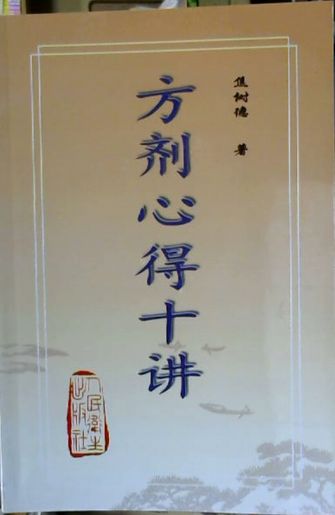 焦树德 著
方剂心得十讲
人民卫生
出版社